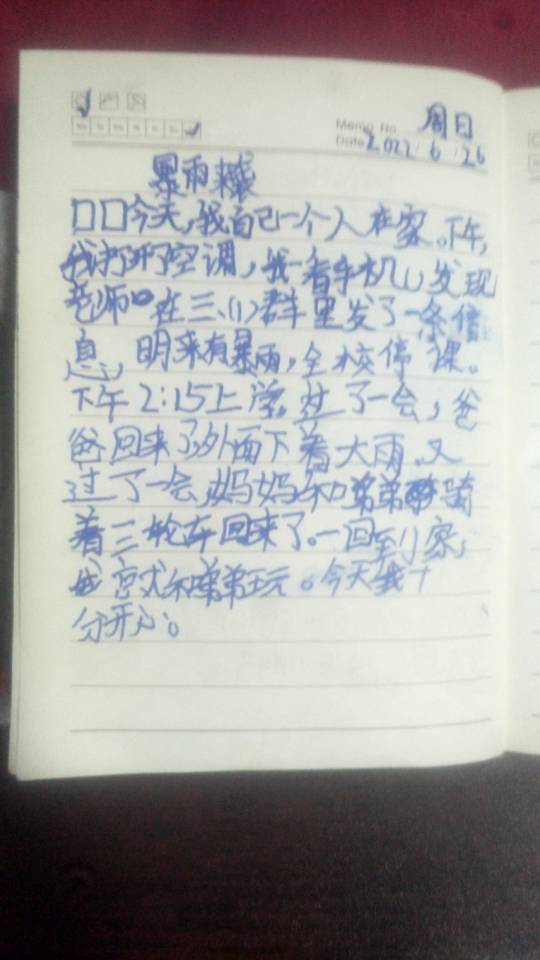 Memo No.
周日
Date 2022/6/26
暴雨来袭
□□今天,我自己一个人在家。下午,
我打开了空调,我一看手机,发现
老师在三、(1)群里发了一条信
息,明来有暴雨,全校停课。
下午2:15上学。过了一会,爸
爸回来了,外面下着大雨。又
过了一会,妈妈和弟弟骑
着三轮车回来了。一回到家,
我就和弟弟玩。今天我十
分开心。